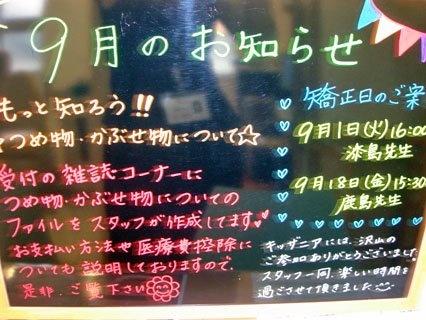 9月のお知らせ
もっと知ろう!!
つめ物・かぶせ物について☆
受付の雑誌コーナーに
つめ物・かぶせ物についての
ファイルをスタッフが作成してます♥
お支払い方法や医療費控除に
ついても説明しておりますので、
是非、ご覧下さい
矯正日のご案
9月1日(火)16:00
漆島先生
9月18日(金)15:30
鹿島先生
キッザニアには、沢山の
ご参加ありがとうございました
スタッフ一同、楽しい時間を
過ごさせて頂きました